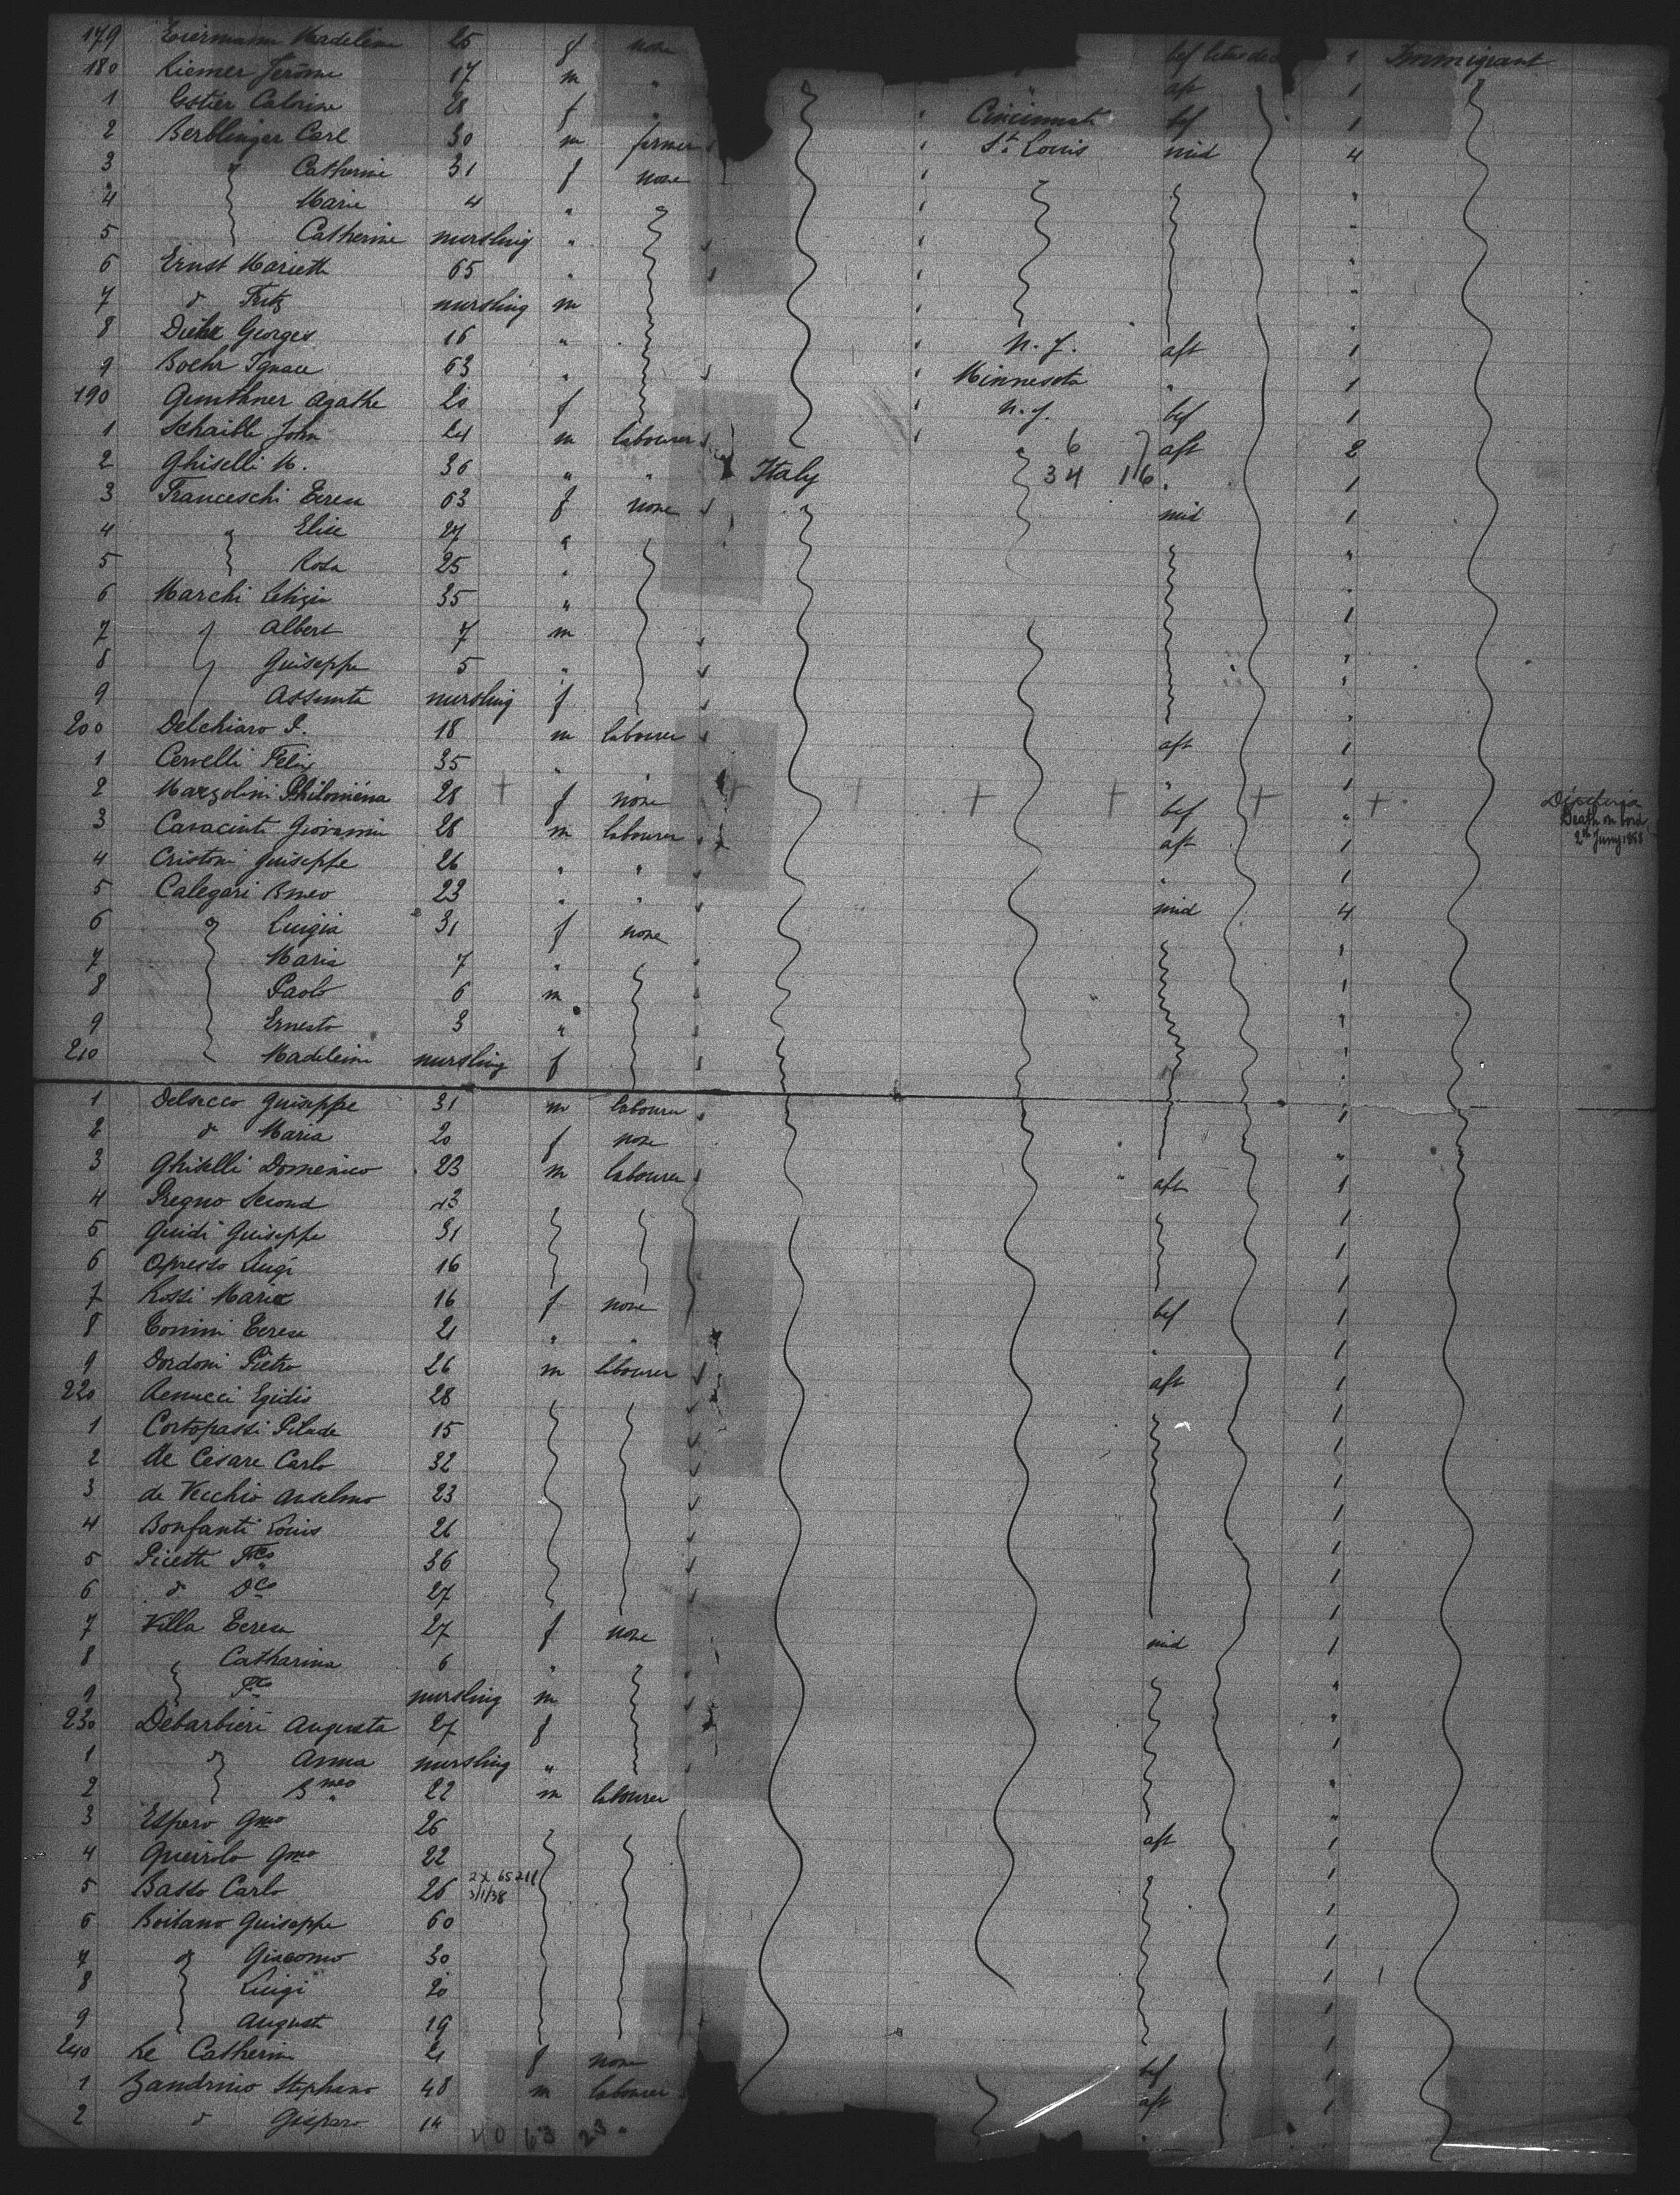 179 Eiermann Madeleine 25 f none bef betw dec 1 Immigrant
180 Riemer Jerôme 17 m " " aft 1
1 Calorine 28 f " Cincinnati bef 1
2 Berblinger Carl 30 m farmer " St. Louis mid 4
3 " Catherine 31 f none "
4 Marie 4 " " "
5 Catherine nursling " " "
6 Ernst Mariette 65 " " "
7 d° Fritz nursling m " "
8 Georges 16 " " N. Y. aft 1
9 Boehr Ignace 63 " " Minnesota " 1
190 Gunthner Agathe 20 f " N. Y. bef 1
1 Schaible John 24 m labourer " " 6 aft 2
2 Ghiselli M. 36 " " Italy 34 116 " 1
3 Franceschi Teresa 63 f none mid 1
4 " Elise 27 " "
5 Rosa 25 " "
6 Marchi Letizia 35 " 1
7 Albert 7 m "
8 Guiseppe 5 " "
9 Assunta nursling f "
200 Delchiaro P. 18 m labourer aft 1
1 Cervelli Felix 35 " " " 1
2 Marzolini Philoména 28 + f none + + + + bef + + " Death on bord
3 Giovanni 28 m labourer aft 1
4 Cristoni Guiseppe 26 " " " 1
5 Calegari Bmeo 23 " " mid 4
6 Luigia 31 f none "
7 Maria 7 " "
8 Paolo 6 m "
9 Ernesto 3 " "
210 Madeleine nursling f "
1 Delsecco Guiseppe 31 m labourer 1
2 d° Maria 20 f none "
3 Ghiselli Domenico 23 m labourer " aft 1
4 Pregno Second 43 1
5 Guidi Guiseppe 31 1
6 Luigi 16 1
7 Rossi Maria 16 f none bef 1
8 Tonini Teresa 21 " " " 1
9 Dordoni Pietro 26 m labourer aft 1
220 Renucci Egidio 28 1
1 Cortopassi Pilade 15 1
2 de Cesare Carlo 32 1
3 de Vecchio Anselmo 23 1
4 Bonfanti Louis 26 1
5 Picetti Fco 36 1
6 d° Dco 27 1
7 Villa Teresa 27 f none mid 1
8 Catharina 6 " "
9 Fco nursling m "
230 Debarbieri Augusta 27 f 1
1 Anna nursling " "
2 Bmeo 22 m labourer "
3 Espero Gmo 26 aft 1
4 Queirolo Gmo 22 1
5 Basso Carlo 26 3/1/38 1
6 Boitano Guiseppe 60 1
7 Giacomo 30 1
8 Luigi 20 1
9 August 19 1
240 Re Catherin 21 f none bef 1
1 Zandrino Stephano 48 m labourer aft 1
2 d° Gaspero 14 " 1
40 63 23